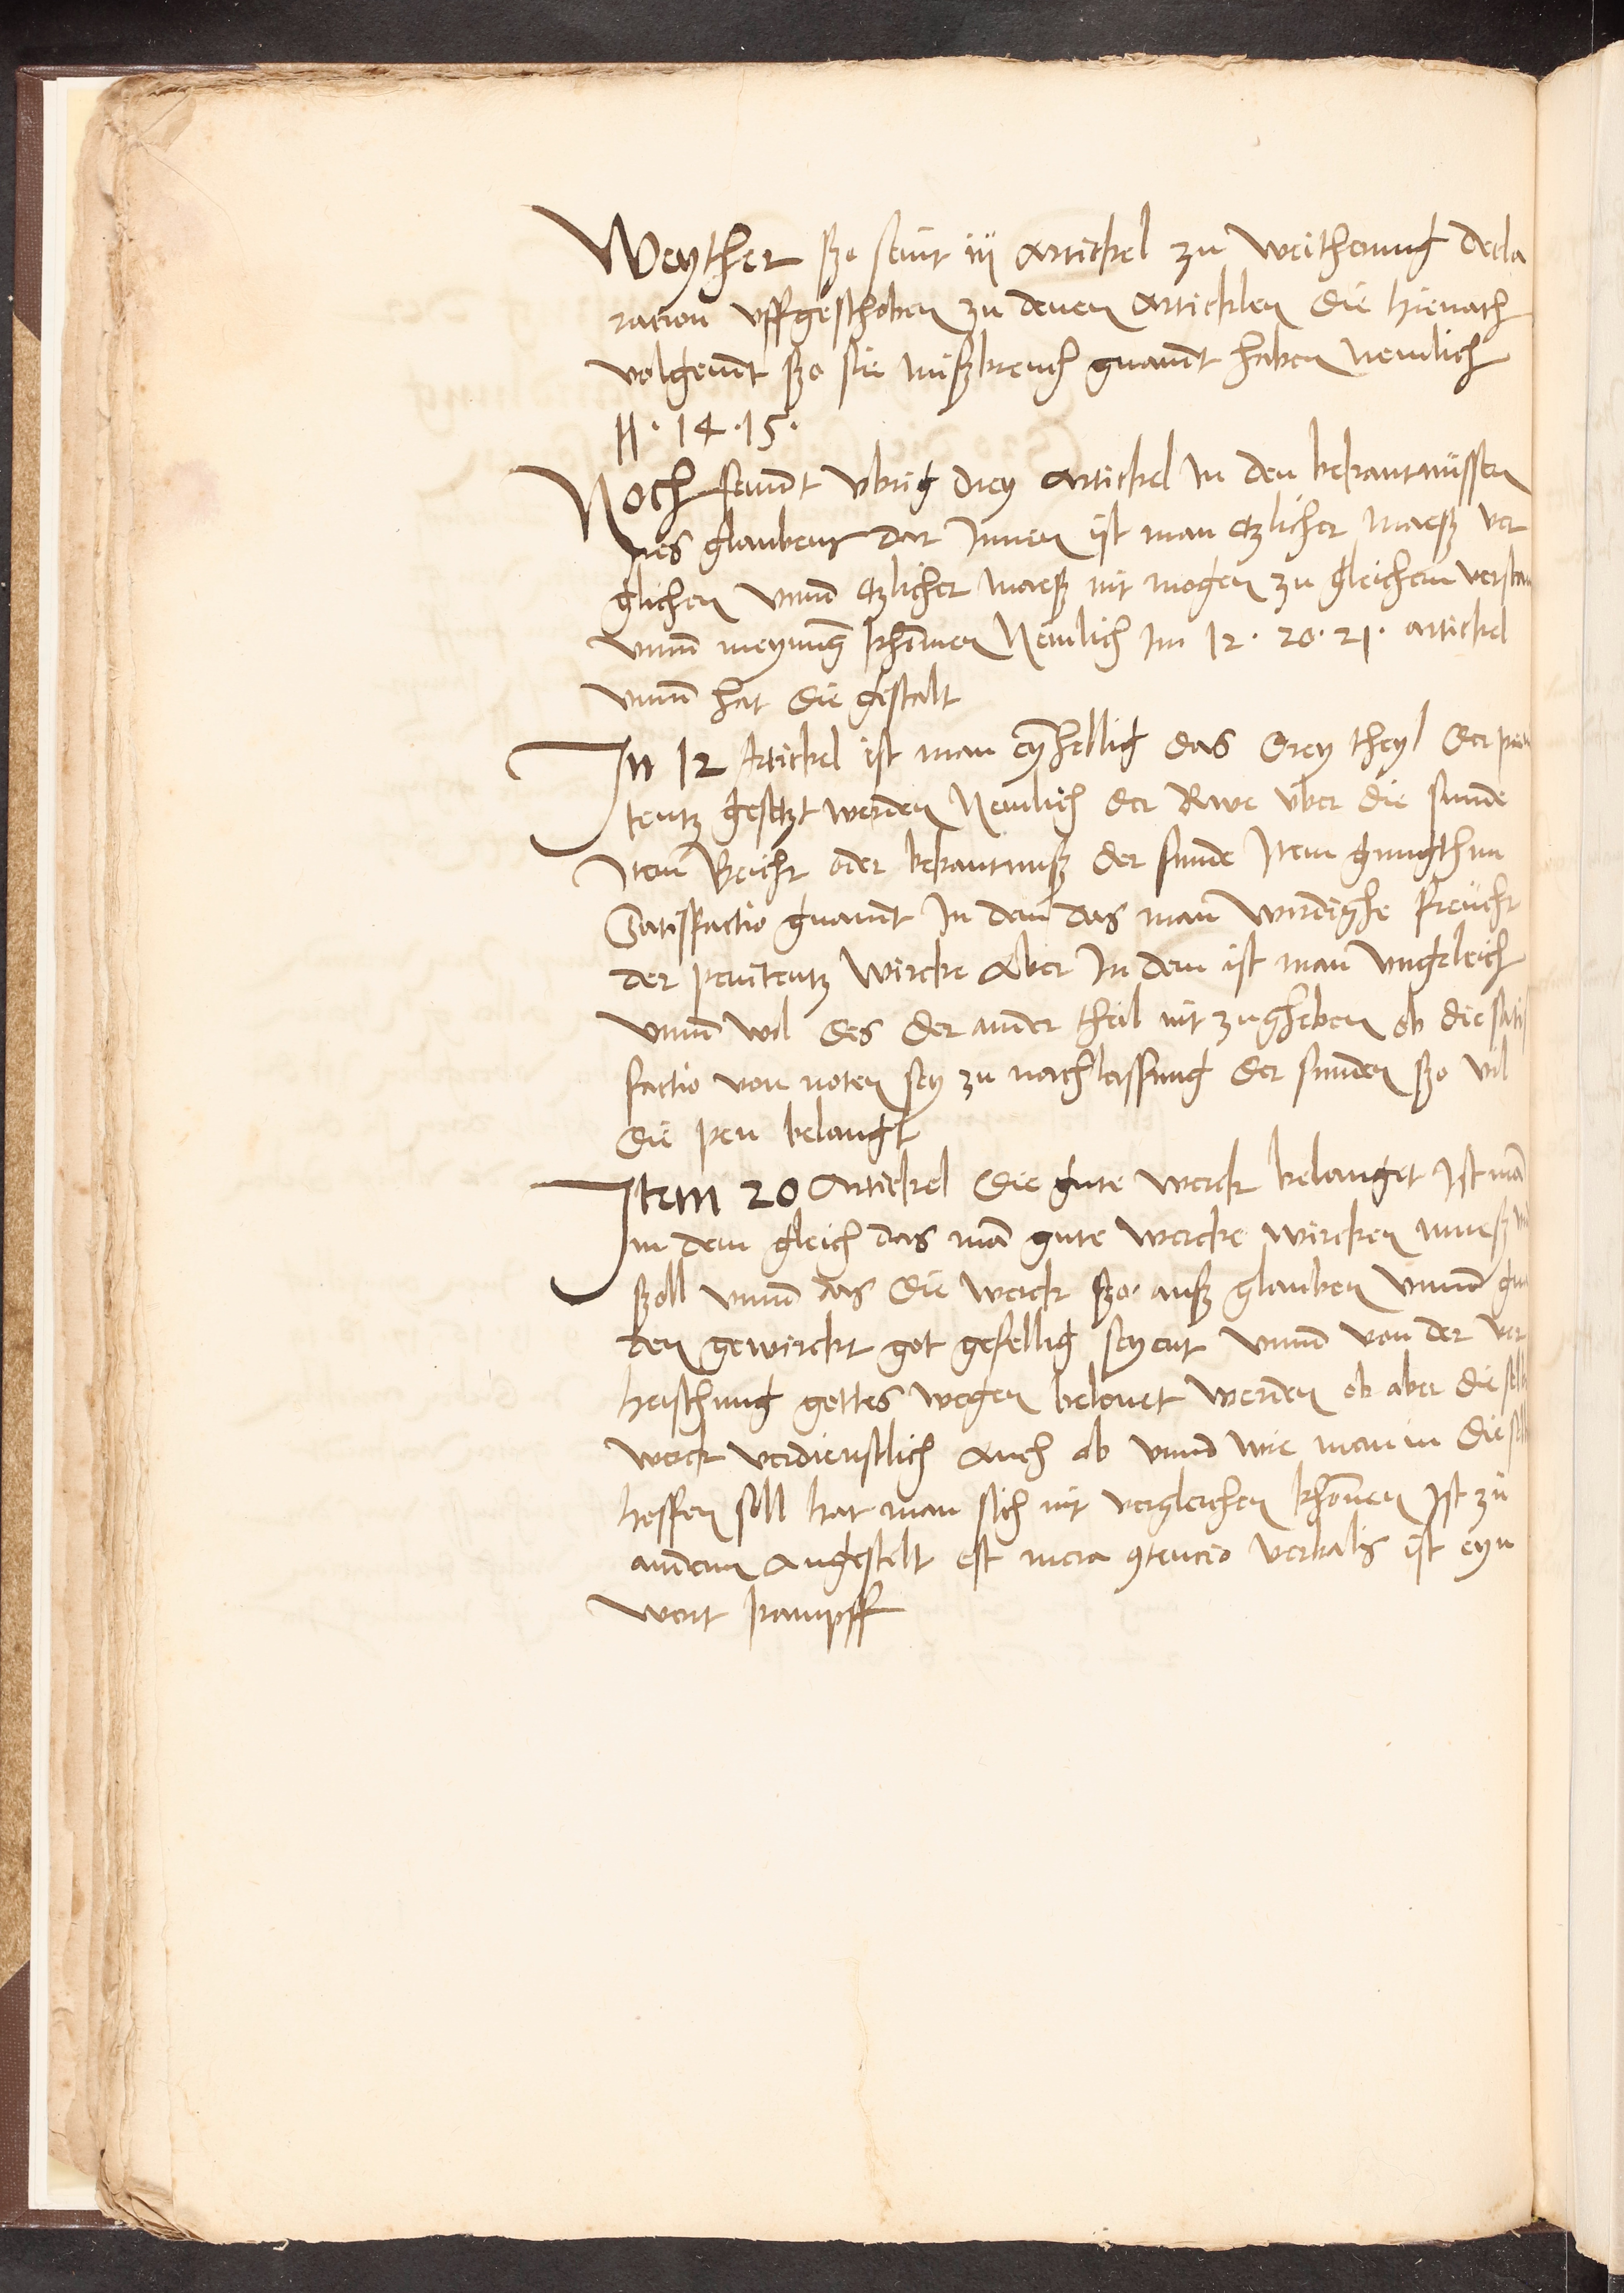 Weyther sßo seint iij Artickel zu weitherung decla
racion uffgeschoben zu denen Articklen die hienach
volgennt sßo sie mißbreuch gnannt haben Nemlich
11 · 14 · 15 ·
Noch seinnt ubrig drey Artickel in den bekantnüssen
des glaubens dar Innen ist man etzlicher maeß ver
glichen Unnd etzlicher maeß nit mogen zu gleichem verstan
Unnd meynung khomen Nemlich Im 12 · 20 · 21 · artickel
Unnd hat die gestalt
In 12 Artickel ist man eynhellig das drey theyl der peni
tentz gesetzt werden Nemlich der Rwe uber die sunde
Item Beicht oder bekantnuß der sunde Item gnugthun
Satisfactio gnannt In dem das man wirdighe freücht
der penitentz Wircke Aber In dem ist man ungeleich
Unnd wil des der ander theil nit zugheben ob die satis
factio von noten sey zu nachlassung der sunden sßo vil
die pen belangt
Item 20 Artickel die gute werck belanget Ist man
in dem gleich das man gute wercke wircken mueß und
sßoll unnd das die werck sßo auß glauben Unnd gna
den gewirckt got gefellig seyent Unnd von der ver
heischung gottes wegen belonet werden ob aber die selb
werck verdienstlich Auch ob unnd wie man in die selb
hoffen soll hat man sich nit vergleichen khonnen Ist zu
anderm Angestelt est mera 9tencio verbalis ist eyn
wort kampff